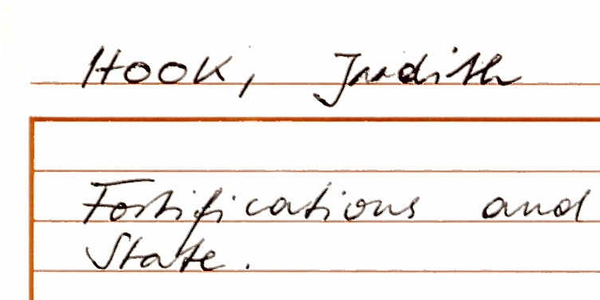 HOOK, Judith
Fortifications and
State.